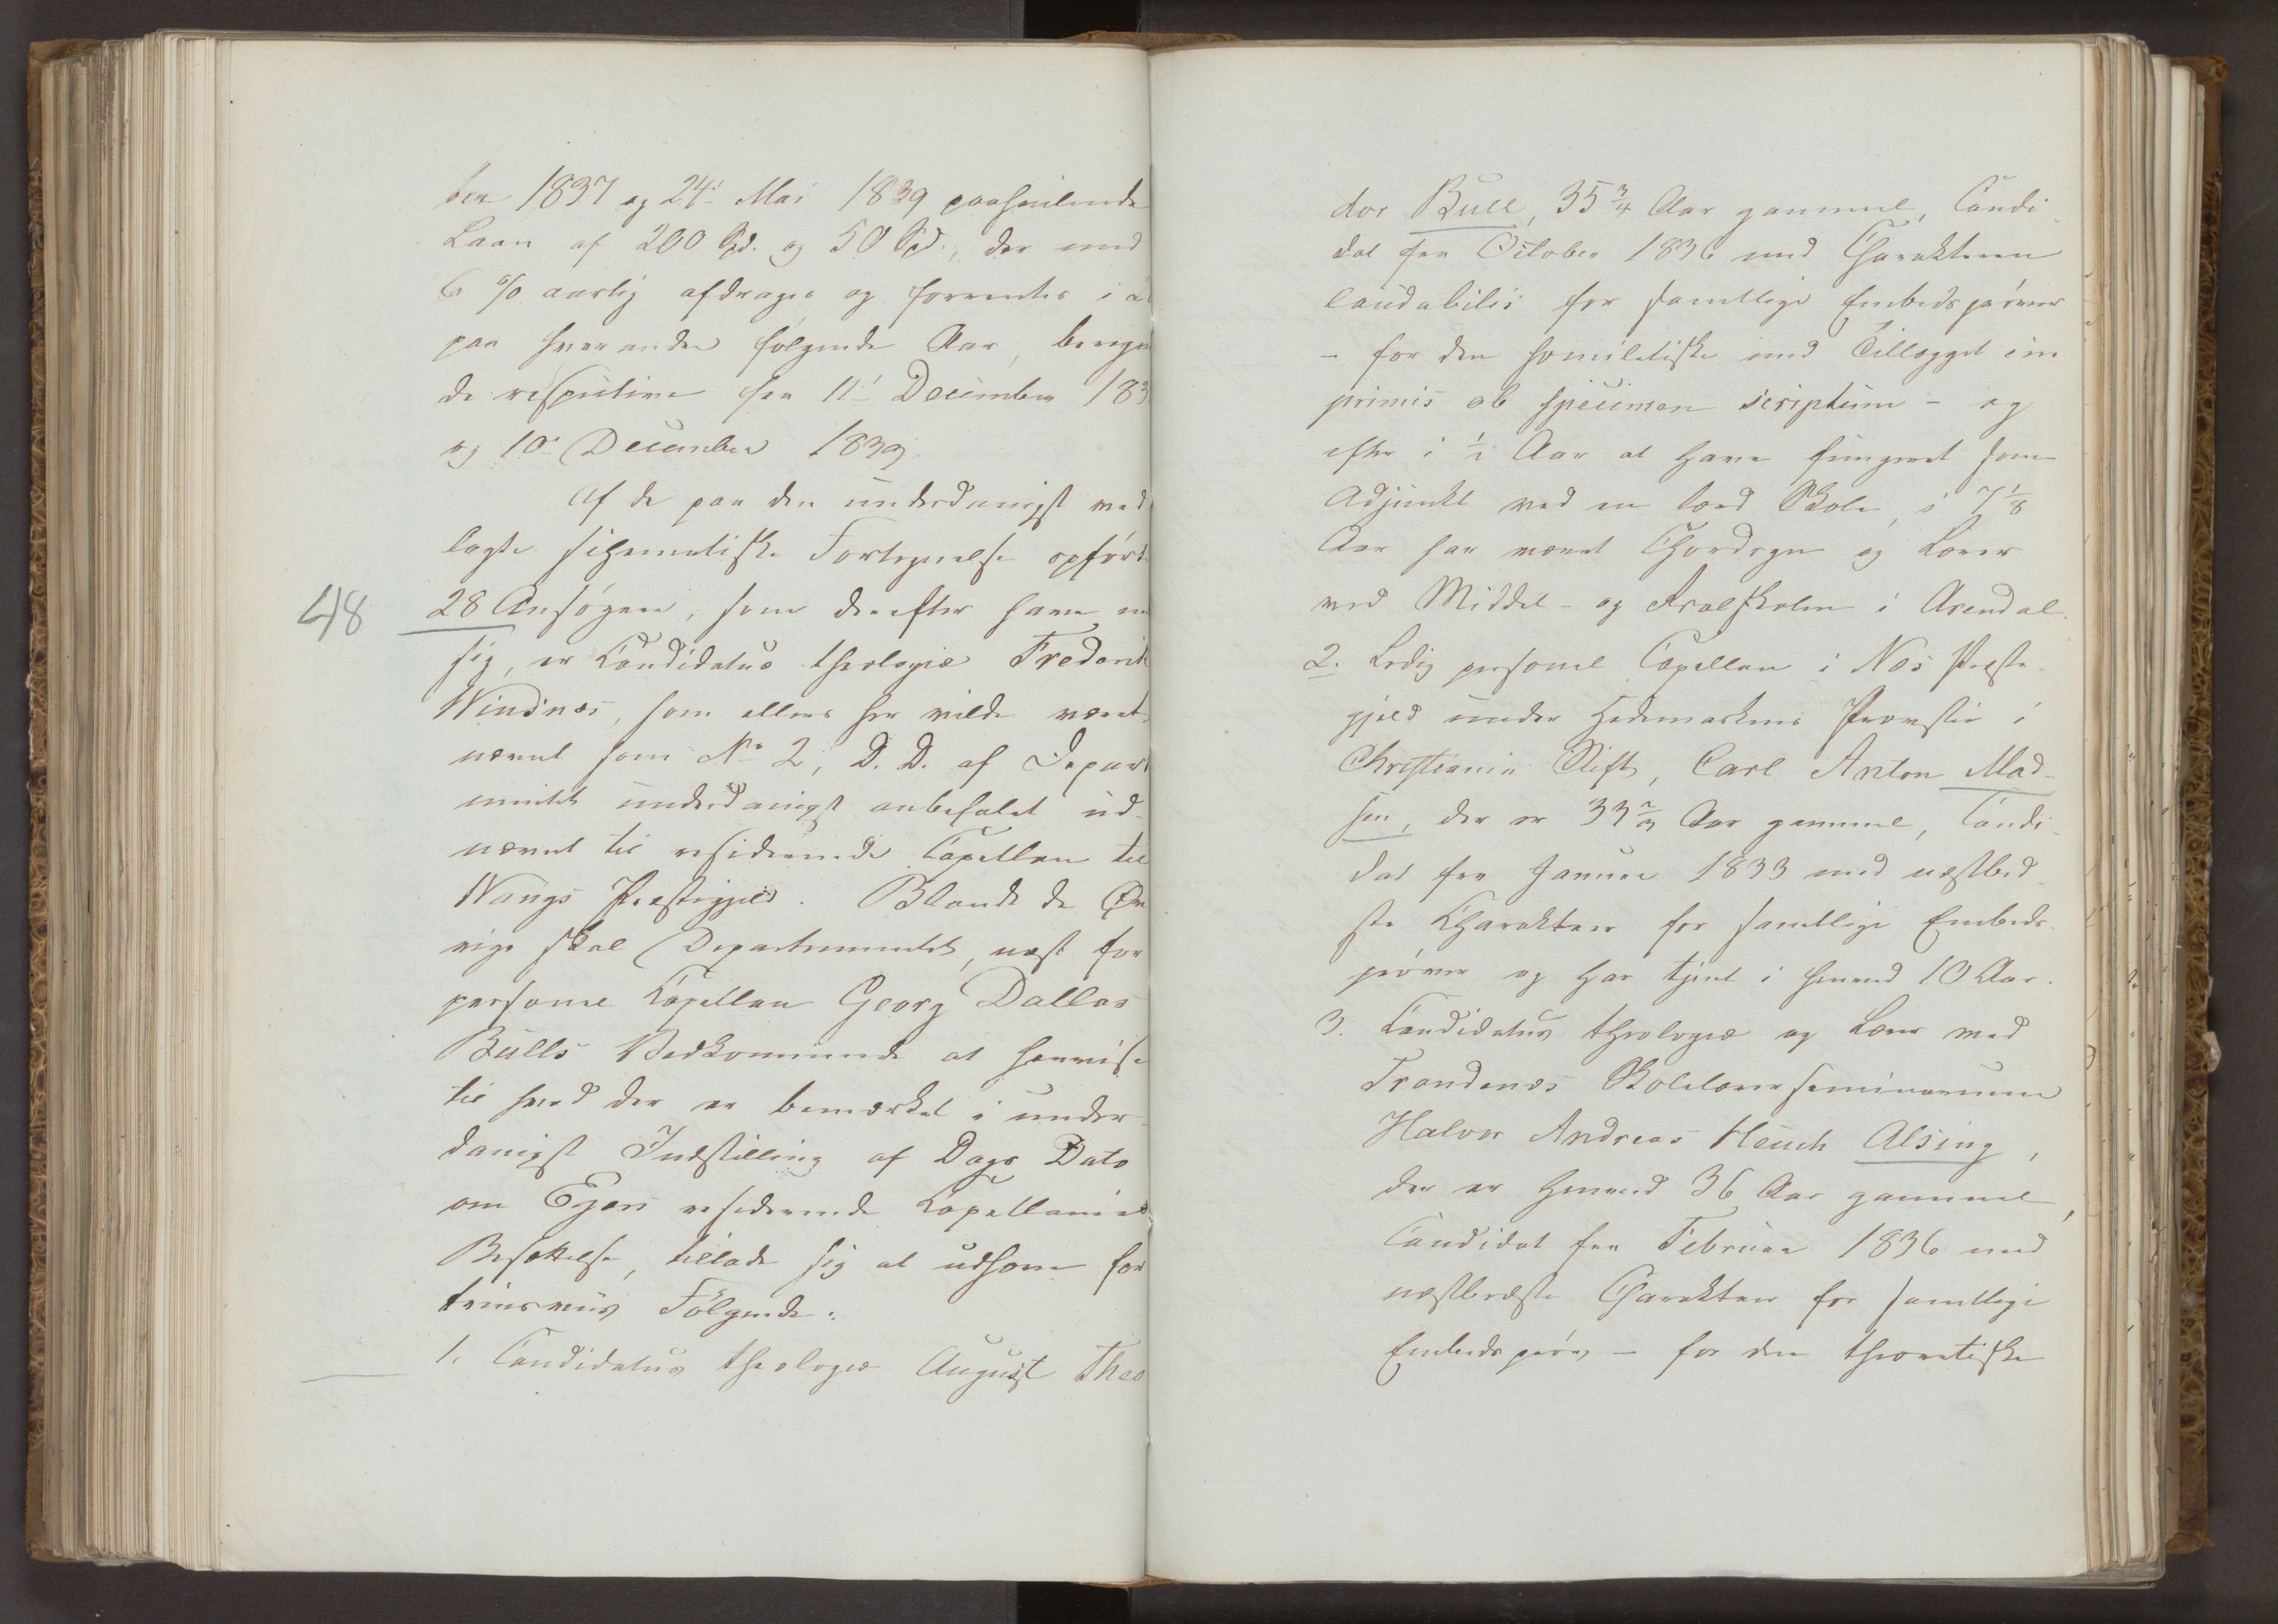 ber 1837 og 24' Mai 1839 paahvilende
Laan af 200 Spd. og 50 Spd., der med
6 % aarlig afdrages og forrentes i
paa hverandre følgende Aar, bereg
de respective fra 11' December 183
og 10' December 1839.
Af de paa den underdanigst ved
lagte schematiske Fortegnelse opførte
48
28 Ansøgere, som derefter have
sig, er Candidatus theologiæ Frederik
Windnæs, som ellers her vilde været
nævnt som No 2, D. D. af Depart
mentet underdanigst anbefalet ud-
nævnt til residerende Capellan til
Nangs Præstegjeld. Blandt de Øv
rige skal Departementet, næst for
personel Capellan Georg Dallas
Bulls Vedkommende at henvise
til hvad der er bemærket i under-
danigst Indstilling af Dags Dato
om Egers residerende Capellanies
Besættelse, tillade sig at udhæve for
trinsviis Følgende:
1. Candidatus theologiæ August Theo
dor Bull, 35 3/4 Aar gammel, Candi-
dat fra October 1836 med Charakteren
laudabilis for samtlige Embedsprøver
- for den homiletiske med Tillægget im
primis ob specimen scriptum - og
efter i 1/2 Aar at have fungeret som
Adjunkt ved en lærd Skole, i 7 1/8
Aar har været Chordegn og Lærer
ved Middel- og Realskolen i Arendal.
2. Ledig personel Capellan i Næs Præste-
gjeld under Hedemarkens Provstie i
Christiania Stift, Carl Anton Mad-
sen, der er 33 2/3 Aar gammel, Candi-
dat fra Januar 1833 med næstbed-
ste Charakteer for samtlige Embeds-
prøver og har tjent i henved 10 Aar.
3. Candidatus theologiæ og Lærer ved
Trondenæs Skolelærerseminarium
Halvor Andreas Heuch Alsing,
der er henved 36 Aar gammel,
Candidat fra Februar 1836 med
næstbedste Charakteer for samtlige
Embedsprøver - for den theoretiske